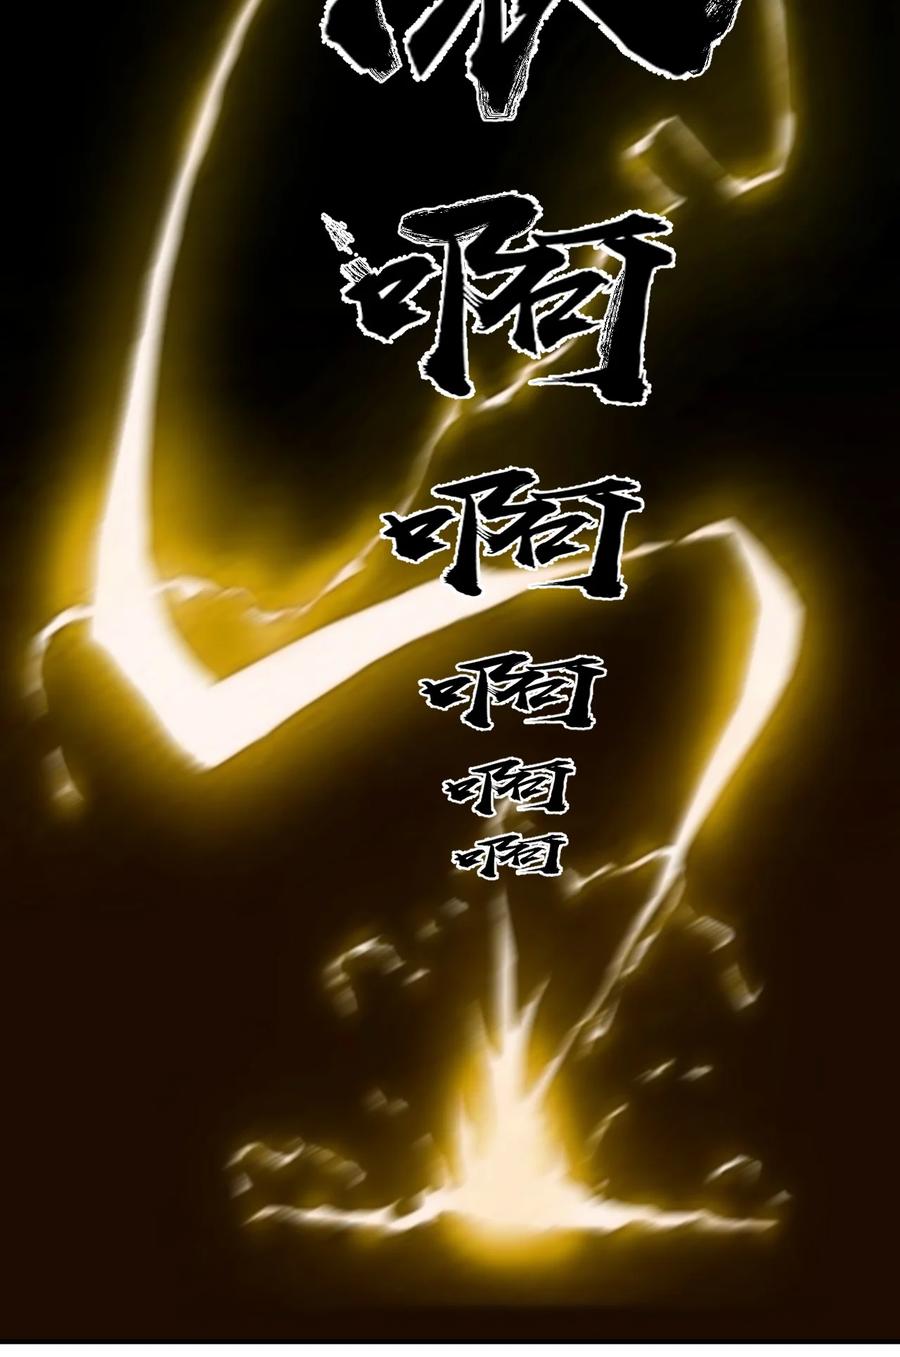 啊
啊
啊
啊
啊